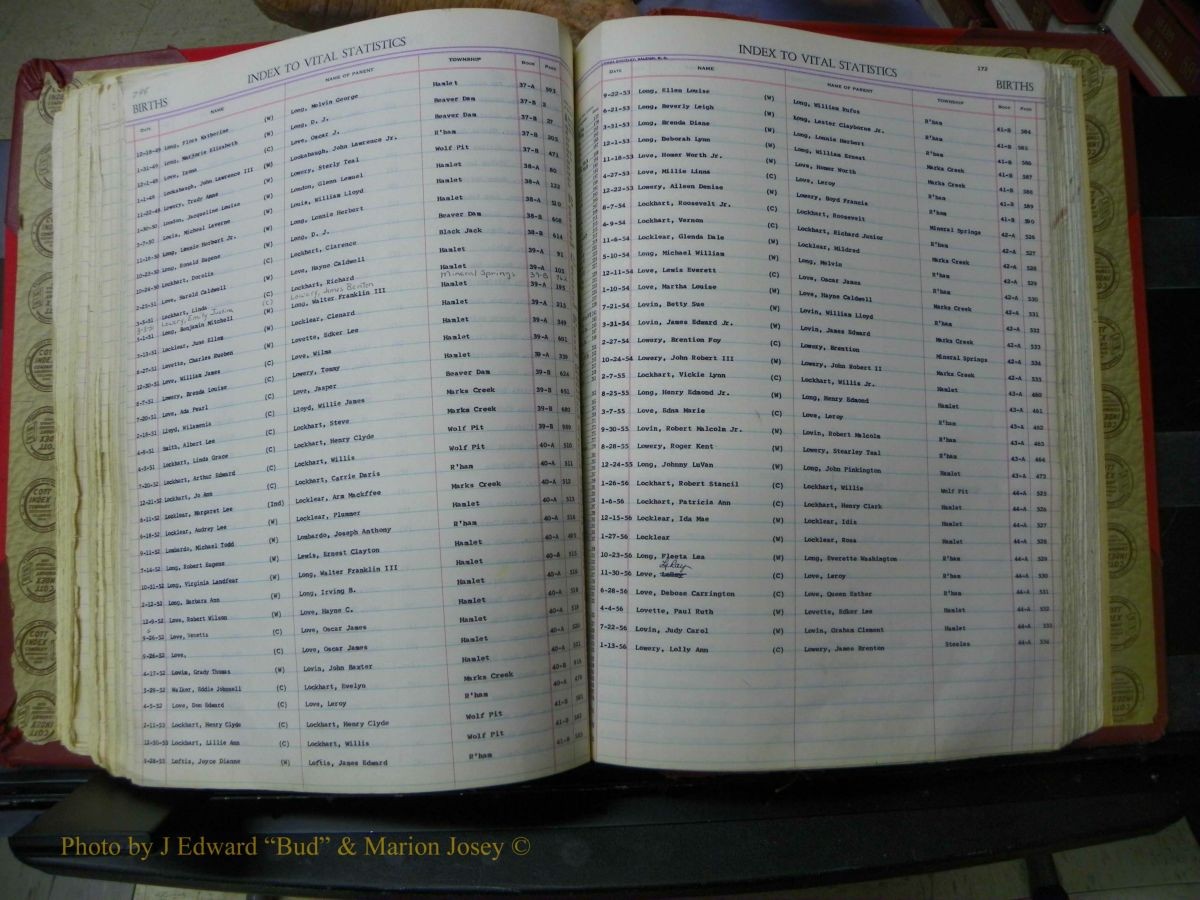 INDEX TO VITAL STATISTICS
BIRTHS
DATE NAME NAME OF PARENT TOWNSHIP BOOK PAGE
12-18-49 Long, Flora Katherine (W) Long, Melvin George Hamlet 37-A 593
1-31-49 Long, Marjorie Elizabeth (W) Long, D. J. Beaver Dam 37-B 2
12-1-49 Love, Irena (C) Love, Oscar J. Beaver Dam 37-B 27
1-1-49 Lookabaugh, John Lawrence III (W) Lookabaugh, John Lawrence Jr. R'ham 37-B 203
11-22-49 Lowery, Trudy Anne (W) Lowery, Sterly Teal Wolf Pit 37-B 471
1-30-50 London, Jacqueline Louise (W) London, Glenn Lemuel Hamlet 38-A 80
3-7-50 Louis, Micheal Laverne (W) Louis, William Lloyd Hamlet 38-A 122
11-18-50 Long, Lonnie Herbert Jr. (W) Long, Lonnie Herbert Hamlet 38-A 510
10-23-50 Long, Ronald Eugene (W) Long, D. J. Beaver Dam 38-B 608
10-24-50 Lockhart, Dorolis (C) Lockhart, Clarence Black Jack 38-B 614
2-25-51 Love, Harold Caldwell (W) Love, Hayne Caldwell Hamlet 39-A 91
3-5-51 Lockhart, Linda (C) Lockhart, Richard Hamlet 39-A 101
Lowery, Emily (C) Lowery, James Benton Mineral Springs 39-B
5-1-51 Long, Benjamin Mitchell (W) Long, Walter Franklin III Hamlet 39-A 195
Locklear, June Ellen Locklear, Clenard Hamlet 39-A 215
Lovette, Charles Rueben (W) Lovette, Edker Lee Hamlet 39-A 349
12-30-51 Love, William James (C) Love, Wilma Hamlet 39-A 601
8-7-51 Lowery, Brenda Louise (C) Lowery, Tommy Hamlet 39-A 339
7-20-51 Love, Ada Pearl (C) Love, Jasper Beaver Dam 39-B 624
2-18-51 Lloyd, Wilamenia (C) Lloyd, Willie James Marks Creek 39-B 651
4-8-51 Smith, Albert Lee (C) Lockhart, Steve Marks Creek 39-B 682
4-3-51 Lockhart, Linda Grace (C) Lockhart, Henry Clyde Wolf Pit 39-B 989
7-20-52 Lockhart, Arthur Edward (C) Lockhart, Willis Wolf Pit 40-A 510
12-21-52 Lockhart, Jo Ann (C) Lockhart, Carrie Davis R'ham 40-A 511
6-11-52 Locklear, Margaret Lee (Ind) Locklear, Arm Mackffee Marks Creek 40-A 512
6-18-52 Locklear, Audrey Lee Locklear, Plummer Hamlet 40-A 513
9-11-52 Lombardo, Michael Todd (W) Lombardo, Joseph Anthony R'ham 40-A 514
7-14-52 Long, Robert Eugene (W) Lewis, Ernest Clayton Hamlet 40-A
10-31-52 Long, Virginia Landfear (W) Long, Walter Franklin III Hamlet 40-A 515
2-12-52 Long, Barbara Ann (W) Long, Irving B. Hamlet 40-A 516
12-9-52 Love, Robert Wilson (W) Love, Hayne C. Hamlet 40-A 518
9-26-52 Love, Venetta (C) Love, Oscar James Hamlet 40-A 519
9-26-52 Love, (C) Love, Oscar James Hamlet 40-A 520
4-17-52 Lovin, Grady Thomas (W) Lovin, John Baxter Hamlet 40-A 521
3-29-52 Walker, Eddie Johnnell (C) Lockhart, Evelyn Marks Creek 40-B 616
4-5-52 Love, Don Edward (C) Love, Leroy R'ham 40-B 676
2-11-53 Lockhart, Henry Clyde (C) Lockhart, Henry Clyde Wolf Pit 41-B 581
12-30-53 Lockhart, Lillie Ann (C) Lockhart, Willis Wolf Pit 41-B 582
9-28-53 Loftis, Joyce Dianne (W) Loftis, James Edward R'ham 41-B 583
INDEX TO VITAL STATISTICS 172
BIRTHS
DATE NAME NAME OF PARENT TOWNSHIP BOOK PAGE
9-22-53 Long, Ellen Louise (W) Long, William Rufus R'ham 41-B 584
6-21-53 Long, Beverly Leigh (W) Long, Lester Clayborne Jr. R'ham 41-B 585
3-31-53 Long, Brenda Diane (W) Long, Lonnie Herbert Marks Creek 41-B 586
12-1-53 Long, Deborah Lynn (W) Long, William Ernest Marks Creek 41-B 587
11-18-53 Love, Homer Worth Jr. (W) Love, Homer Worth R'ham 41-B 588
4-27-53 Love, Millie Linna (C) Love, Leroy R'ham 41-B 589
12-22-53 Lowery, Aileen Denise (W) Lowery, Boyd Francis Mineral Springs 41-B 590
8-7-54 Lockhart, Roosevelt Jr. (C) Lockhart, Roosevelt R'ham 42-A 526
6-9-54 Lockhart, Vernon (C) Lockhart, Richard Junior Marks Creek 42-A 527
11-6-54 Locklear, Glenda Dale (W) Locklear, Mildred R'ham 42-A 528
5-10-54 Long, Michael William (W) Long, Melvin R'ham 42-A 529
12-11-54 Love, Lewis Everett (C) Love, Oscar James Marks Creek 42-A 530
1-10-54 Love, Martha Louise (W) Love, Hayne Caldwell R'ham 42-A 531
7-21-54 Lovin, Betty Sue (W) Lovin, William Lloyd Marks Creek 42-A 532
3-31-54 Lovin, James Edward Jr. (W) Lovin, James Edward Mineral Springs 42-A 533
2-27-54 Lowery, Brention Foy (C) Lowery, Brention Marks Creek 42-A 534
10-24-54 Lowery, John Robert III (W) Lowery, John Robert II Hamlet 42-A 535
2-7-55 Lockhart, Vickie Lynn (C) Lockhart, Willis Jr. Hamlet 43-A 460
8-25-55 Long, Henry Edmond Jr. (W) Long, Henry Edmond R'ham 43-A 461
3-7-55 Love, Edna Marie (C) Love, Leroy R'ham 43-A 462
9-30-55 Lovin, Robert Malcolm Jr. (W) Lovin, Robert Malcolm R'ham 43-A 463
8-28-55 Lowery, Roger Kent (W) Lowery, Stearley Teal Hamlet 43-A 464
12-24-55 Long, Johnny LuVan (W) Long, John Pinkington Wolf Pit 43-A 473
1-26-56 Lockhart, Robert Stancil (C) Lockhart, Willie Hamlet 44-A 525
1-6-56 Lockhart, Patricia Ann (C) Lockhart, Henry Clark Hamlet 44-A 526
12-15-56 Locklear, Ida Mae (W) Locklear, Idis Hamlet 44-A 527
1-27-56 Locklear (W) Locklear, Rosa R'ham 44-A 528
10-23-56 Long, Fleeta Lea (W) Long, Everette Washington R'ham 44-A 529
LeRay
11-30-56 Love, LeRoy (C) Love, Leroy R'ham 44-A 530
6-28-56 Love, Debose Carrington (C) Love, Queen Esther Hamlet 44-A 531
4-4-56 Lovette, Paul Ruth (W) Lovette, Edker Lee Hamlet 44-A 532
7-22-56 Lovin, Judy Carol (W) Lovin, Graham Clement Steeles 44-A 533
1-13-56 Lowery, Lolly Ann (C) Lowery, James Brenton 44-A 534
COTT INDEX COMPANY
Photo by J Edward “Bud” & Marion Josey ©